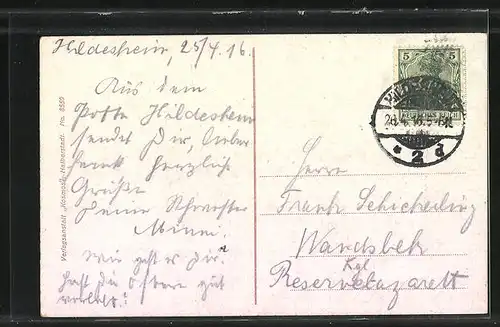 Hildesheim, 25/4. 16.
Aus dem
Hildesheim
sendet Dir, lieber
herzliche
Grüße
Deine Schwester
Minni.
Wie geht es Dir
hast Du Ostern gut
verlebt?
Verlagsanstalt „Kosmos“, Halberstadt. No.
5 5
26.4.16.5-6N.
* 2 d
Herrn
Frank
Wandsbek
Kgl.
Reservelazarett